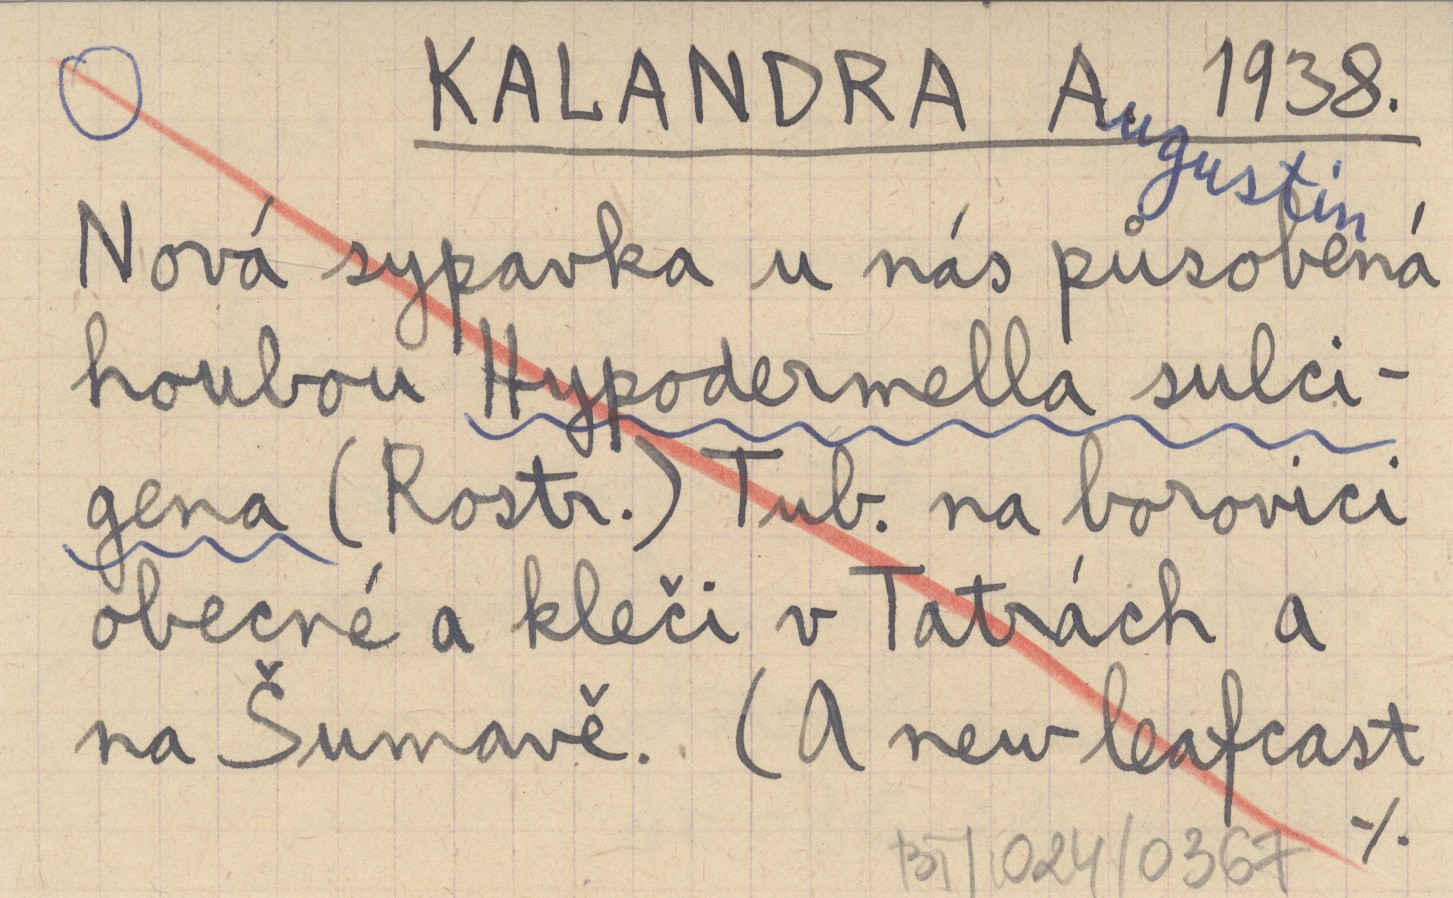 KALANDRA A. 1938.
ugustin
Nová sypavka u nás působená
houbou Hypodermella sulci-
gena (Rostr.) Tub. na borovici
obecné a kleči v Tatrách a
na Šumavě. (A new leafcast
-/.
/024/0367